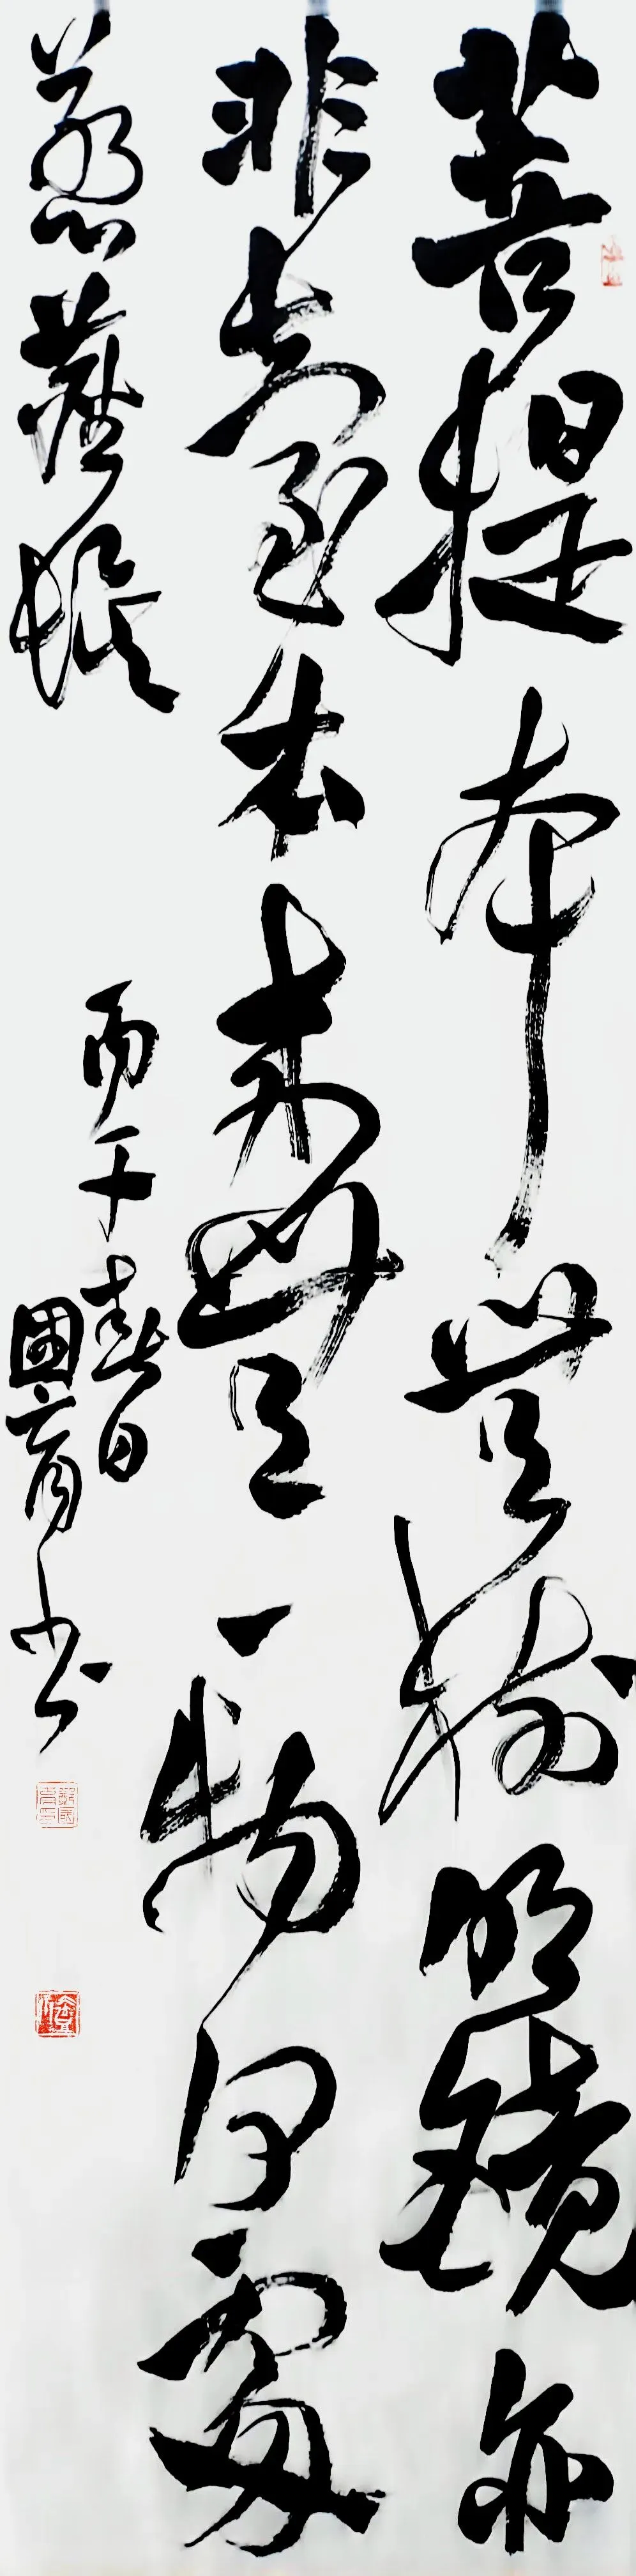 菩提本無樹明鏡亦
非臺本來無一物何處
惹塵埃
丙午春日
國育书